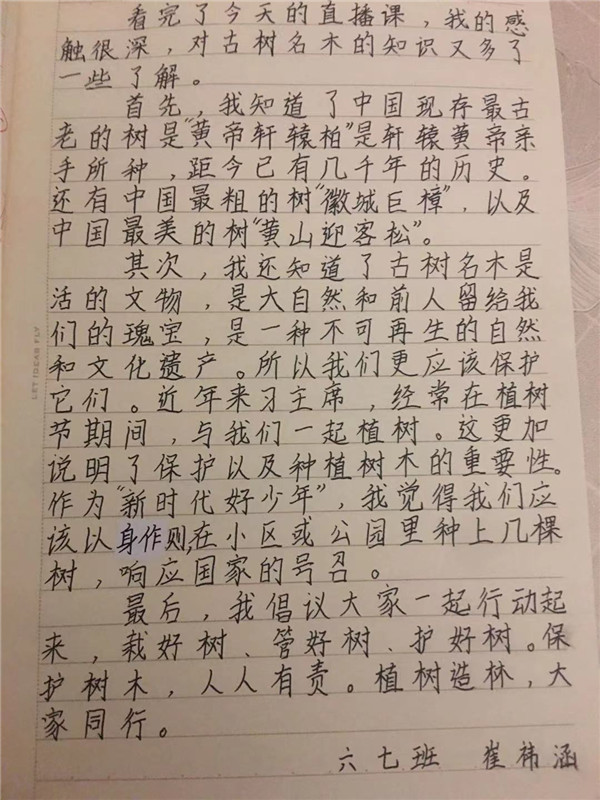 看完了今天的直播课，我的感
触很深，对古树名木的知识又多了
一些了解。
首先，我知道了中国现存最古
老的树是“黄帝轩辕柏”是轩辕黄帝亲
手所种，距今已有几千年的历史。
还有中国最粗的树“徽城巨樟”，以及
中国最美的树“黄山迎客松”。
其次，我还知道了古树名木是
活的文物，是大自然和前人留给我
们的瑰宝，是一种不可再生的自然
和文化遗产。所以我们更应该保护
它们。近年来习主席，经常在植树
节期间，与我们一起植树。这更加
说明了保护以及种植树木的重要性。
作为“新时代好少年”，我觉得我们应
该以身作则，在小区或公园里种上几棵
树，响应国家的号召。
最后，我倡议大家一起行动起
来，栽好树、管好树、护好树。保
护树木，人人有责。植树造林，大
家同行。
六七班 崔祎涵
LET IDEAS FLY